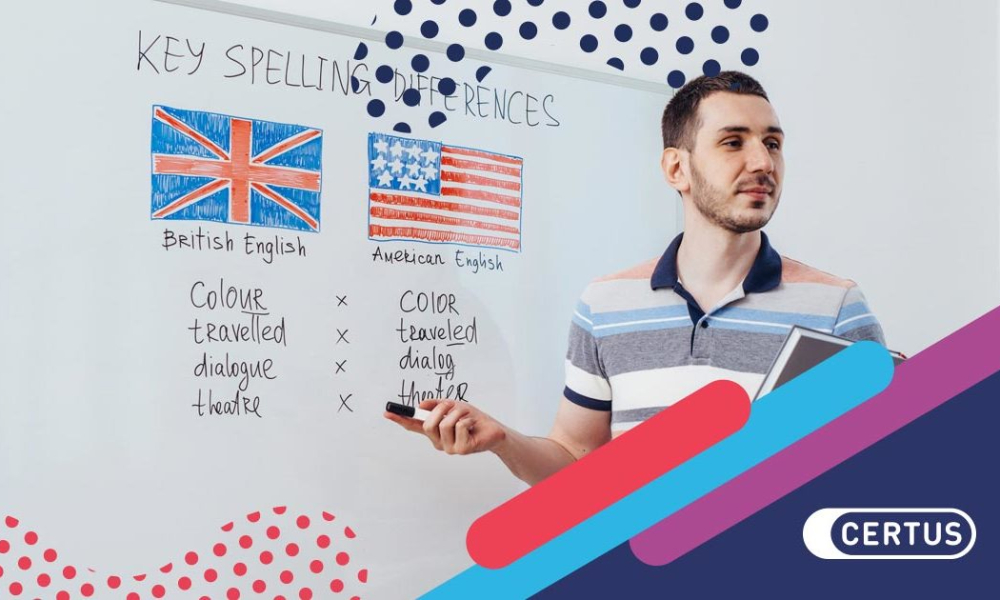 KEY SPELLING DIFFERENCES
British English
American English
Colour x COLOR
travelled x traveled
dialogue x dialog
theatre x theater
CERTUS